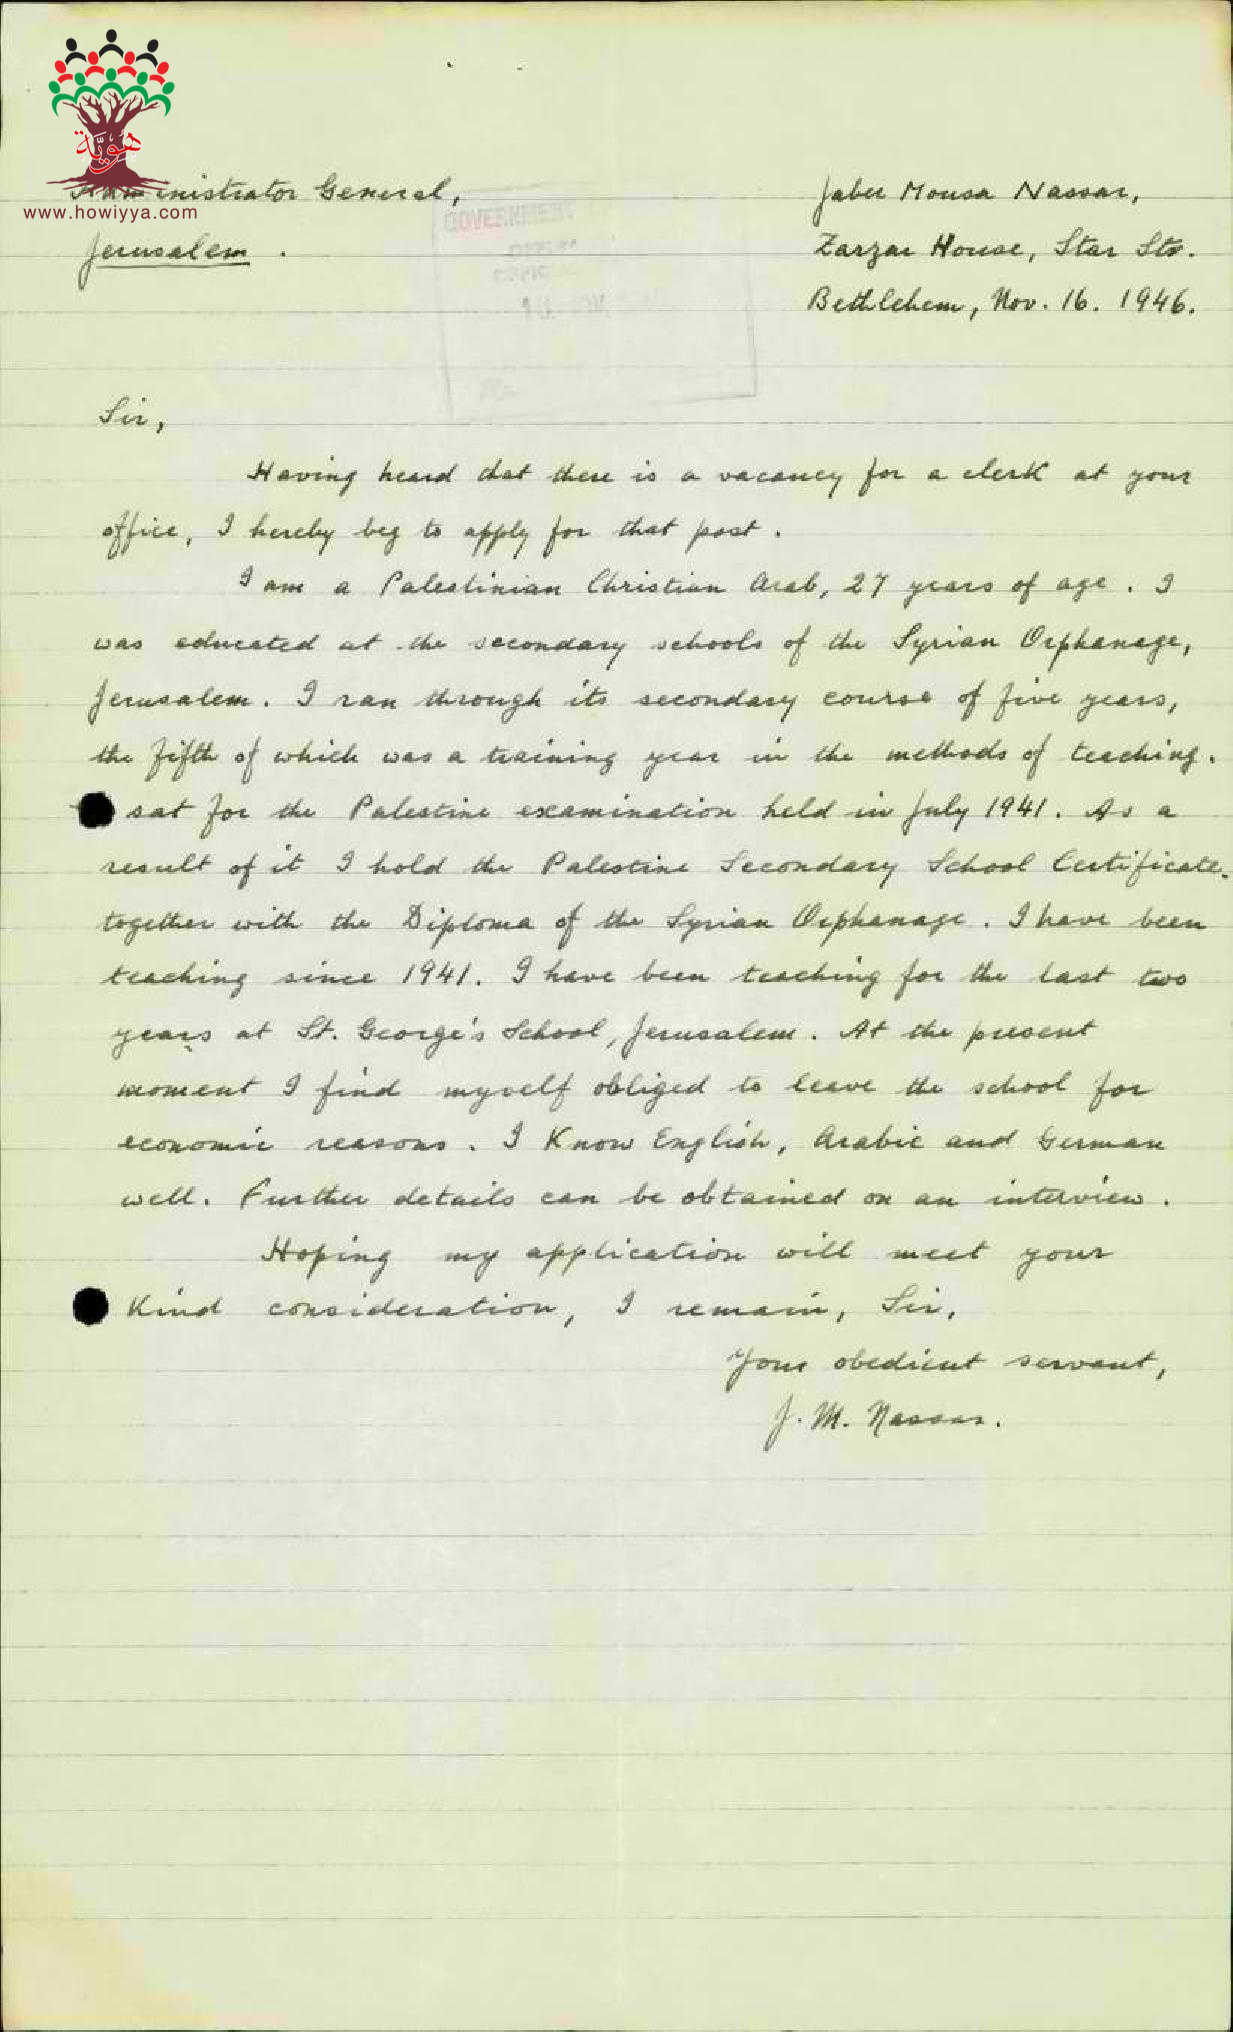 هويّة
www.howiyya.com
Administrator General,
Jerusalem .
Jaber Mousa Nassar,
Zarzar House, Star Str.
Bethlehem, Nov. 16. 1946.
GOVERNMENT
Sir,
Having heard that there is a vacancy for a clerk at your
office, I hereby beg to apply for that post .
I am a Palestinian Christian Arab, 27 years of age . I
was educated at the secondary schools of the Syrian Orphanage,
Jerusalem . I ran through its secondary course of five years,
the fifth of which was a training year in the methods of teaching .
sat for the Palestine examination held in July 1941 . As a
result of it I hold the Palestine Secondary School Certificate.
together with the Diploma of the Syrian Orphanage . I have been
teaching since 1941 . I have been teaching for the last two
years at St. George's School, Jerusalem . At the present
moment I find myself obliged to leave the school for
economic reasons . I Know English, Arabic and German
well . Further details can be obtained on an interview .
Hoping my application will meet your
Kind consideration, I remain, Sir,
Your obedient servant,
J. M. Nassar.